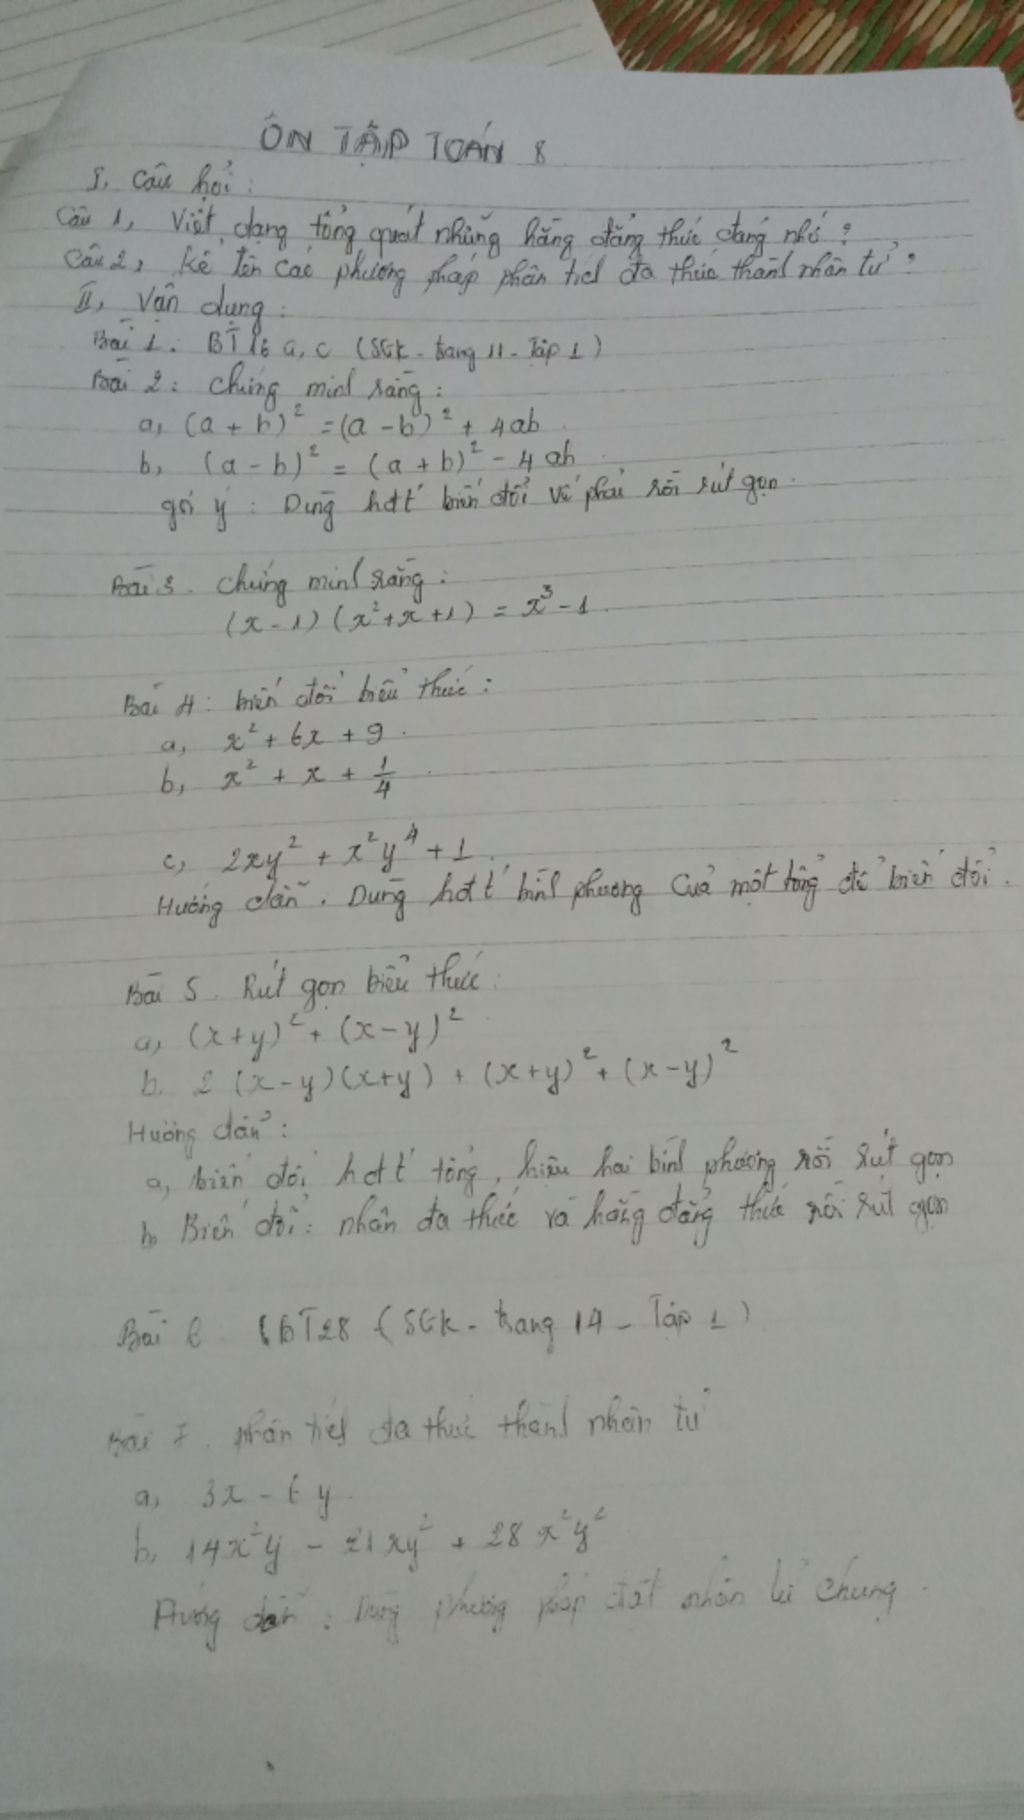 ÔN TẬP TOÁN 8
I, Câu hỏi:
Câu 1, Viết dạng tổng quát những hằng đẳng thức đáng nhớ?
Câu 2, Kể tên các phương pháp phân tích đa thức thành nhân tử?
II, Vận dụng:
Bài 1: BT 16 a, c (SGK - trang 11 - Tập 1)
Bài 2: Chứng minh rằng:
a, (a + b)² = (a - b)² + 4ab
b, (a - b)² = (a + b)² - 4ab
gợi ý: Dùng hđt biến đổi vế phải rồi rút gọn.
Bài 3. Chứng minh rằng:
(x - 1)(x² + x + 1) = x³ - 1.
Bài 4: biến đổi biểu thức:
a, x² + 6x + 9.
b, x² + x + 1/4.
c, 2xy² + x²y⁴ + 1.
Hướng dẫn. Dùng hđt bình phương của một tổng để biến đổi.
Bài 5. Rút gọn biểu thức:
a, (x+y)² + (x-y)²
b. 2(x-y)(x+y) + (x+y)² + (x-y)²
Hướng dẫn:
a, biến đổi hđt tổng, hiệu hai bình phương rồi rút gọn
b Biến đổi: nhân đa thức và hằng đẳng thức rồi rút gọn
Bài 6: BT28 (SGK - trang 14 - Tập 1)
Bài 7. Phân tích đa thức thành nhân tử
a, 3x - 6y.
b, 14x²y - 21xy² + 28x²y²
Hướng dẫn: Dùng phương pháp đặt nhân tử chung.